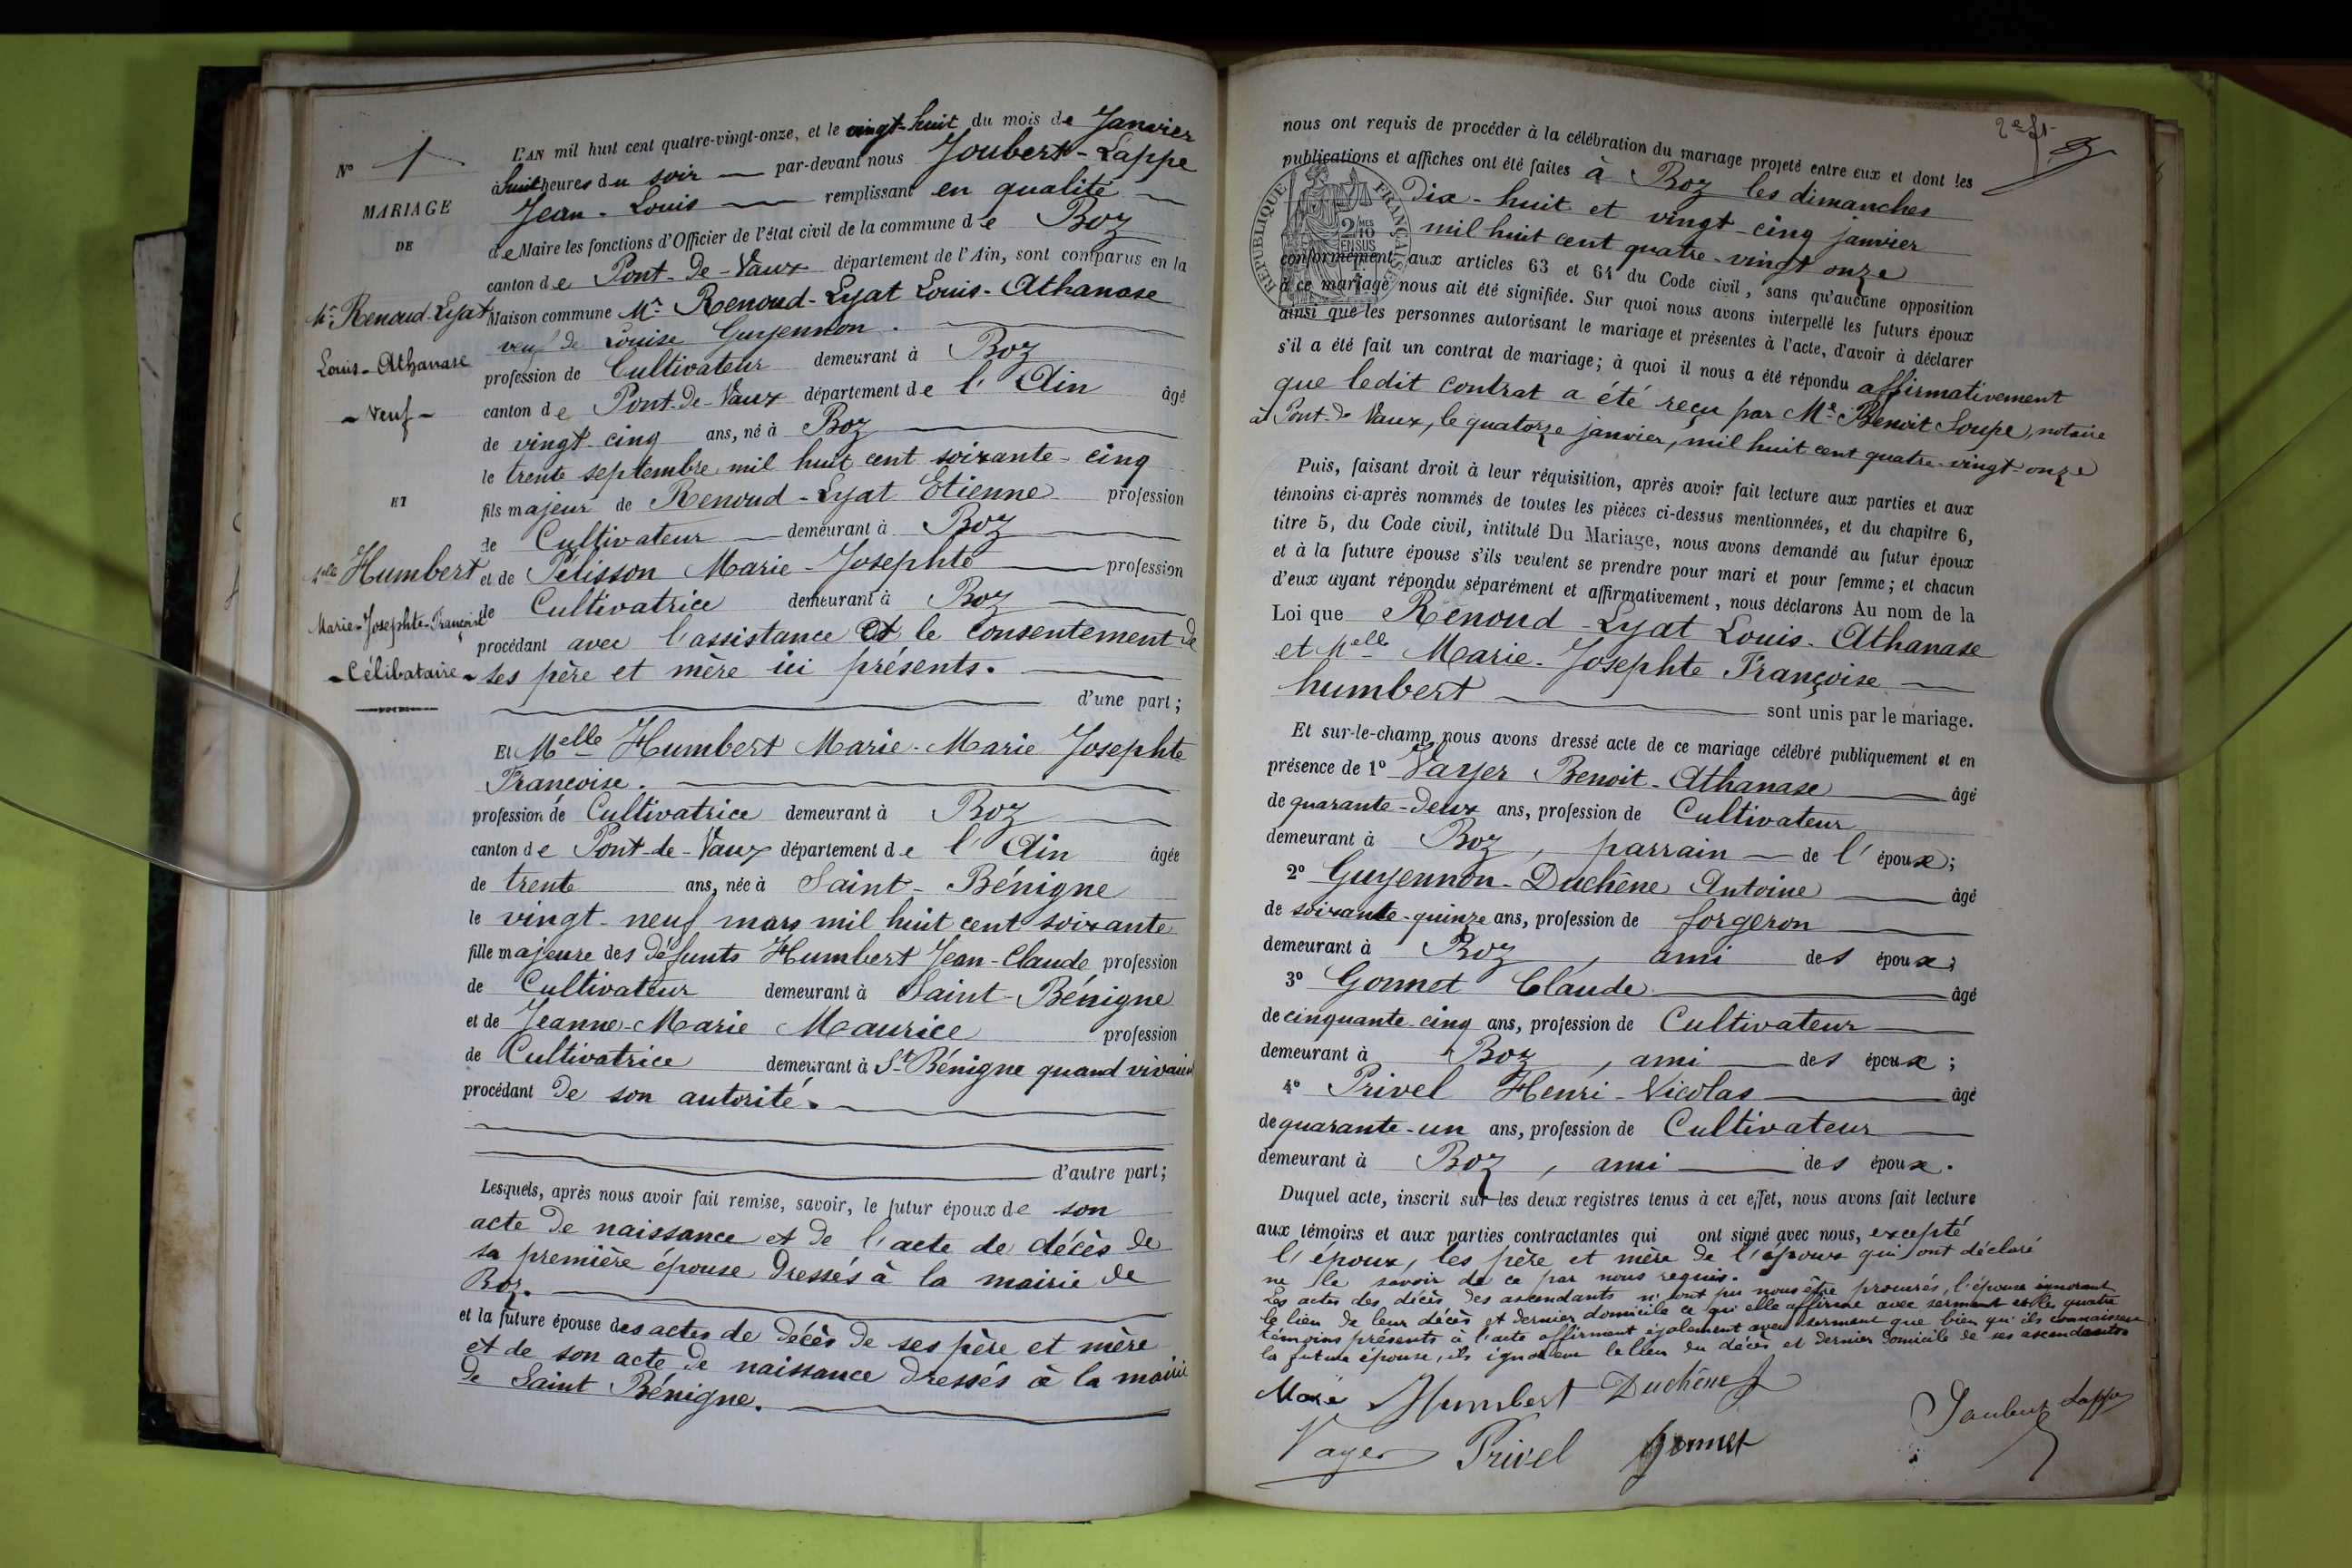 N° 1
MARIAGE
DE
Mr Renoud-Lyat
Louis-Athanase
- Veuf -
ET
Melle Humbert
Marie-Josephte-Françoise
- Célibataire -
L'AN mil huit cent quatre-vingt-onze, et le vingt-huit du mois de Janvier
à huit heures du soir — par-devant nous Joubert-Lappe
Jean-Louis — remplissant en qualité —
de Maire les fonctions d'Officier de l'état civil de la commune de Boz
canton de Pont-de-Vaux département de l'Ain, sont comparus en la
Maison commune Mr Renoud-Lyat Louis-Athanase
veuf de Louise Guyennon.
profession de Cultivateur demeurant à Boz
canton de Pont-de-Vaux département de l'Ain âgé
de vingt-cinq ans, né à Boz
le trente septembre mil huit cent soixante-cinq
fils majeur de Renoud-Lyat Etienne profession
de Cultivateur — demeurant à Boz
et de Pélisson Marie-Josephte — profession
de Cultivatrice demeurant à Boz
procédant avec l'assistance et le consentement de
ses père et mère ici présents.
d'une part;
Et Melle Humbert Marie-Marie Josephte
Françoise.
profession de Cultivatrice demeurant à Boz
canton de Pont-de-Vaux département de l'Ain âgée
de trente ans, née à Saint-Bénigne
le vingt-neuf mars mil huit cent soixante
fille majeure des défunts Humbert Jean-Claude profession
de Cultivateur demeurant à Saint-Bénigne
et de Jeanne-Marie Maurice profession
de Cultivatrice demeurant à St Bénigne quand vivaient
procédant de son autorité.
d'autre part;
Lesquels, après nous avoir fait remise, savoir, le futur époux de son
acte de naissance et de l'acte de décès de
sa première épouse dressés à la mairie de
Boz.
et la future épouse des actes de décès de ses père et mère
et de son acte de naissance dressés à la mairie
de Saint Bénigne.
2e
nous ont requis de procéder à la célébration du mariage projeté entre eux et dont les
publications et affiches ont été faites à Boz les dimanches
Dix-huit et vingt-cinq janvier
mil huit cent quatre-vingt onze
RÉPUBLIQUE FRANÇAISE
2/10 EN SUS
conformément aux articles 63 et 64 du Code civil, sans qu'aucune opposition
à ce mariage nous ait été signifiée. Sur quoi nous avons interpellé les futurs époux
ainsi que les personnes autorisant le mariage et présentes à l'acte, d'avoir à déclarer
s'il a été fait un contrat de mariage; à quoi il nous a été répondu affirmativement
que ledit contrat a été reçu par Me Benoit Soupe, notaire
à Pont-de Vaux, le quatorze janvier, mil huit cent quatre-vingt-onze
Puis, faisant droit à leur réquisition, après avoir fait lecture aux parties et aux
témoins ci-après nommés de toutes les pièces ci-dessus mentionnées, et du chapitre 6,
titre 5, du Code civil, intitulé Du Mariage, nous avons demandé au futur époux
et à la future épouse s'ils veulent se prendre pour mari et pour femme; et chacun
d'eux ayant répondu séparément et affirmativement, nous déclarons Au nom de la
Loi que Renoud-Lyat Louis-Athanase
et Melle Marie-Josephte Françoise —
humbert — sont unis par le mariage.
Et sur-le-champ nous avons dressé acte de ce mariage célébré publiquement et en
présence de 1° Vayer Benoit-Athanase — âgé
de quarante-deux ans, profession de Cultivateur
demeurant à Boz, parrain — de l'époux;
2° Guyennon-Duchêne Antoine — âgé
de soixante-quinze ans, profession de forgeron
demeurant à Boz, ami des époux;
3° Gonnet Claude — âgé
de cinquante-cinq ans, profession de Cultivateur —
demeurant à Boz, ami — des époux;
4° Privel Henri-Nicolas — âgé
de quarante-un ans, profession de Cultivateur —
demeurant à Boz, ami — des époux.
Duquel acte, inscrit sur les deux registres tenus à cet effet, nous avons fait lecture
aux témoins et aux parties contractantes qui ont signé avec nous, excepté
l'époux, les père et mère de l'époux qui ont déclaré
ne le savoir de ce par nous requis.
Les actes des décès des ascendants n'ont pu nous être procurés, l'épouse ignorant
le lieu de leur décès et dernier domicile ce qu'elle affirme avec serment et les quatre
témoins présents à l'acte affirment également avec serment que bien qu'ils connaissent
la future épouse, ils ignorent le lieu du décès et dernier domicile de ses ascendants
Humbert Duchêne
Vayer Privel Gonnet
Joubert Lappe